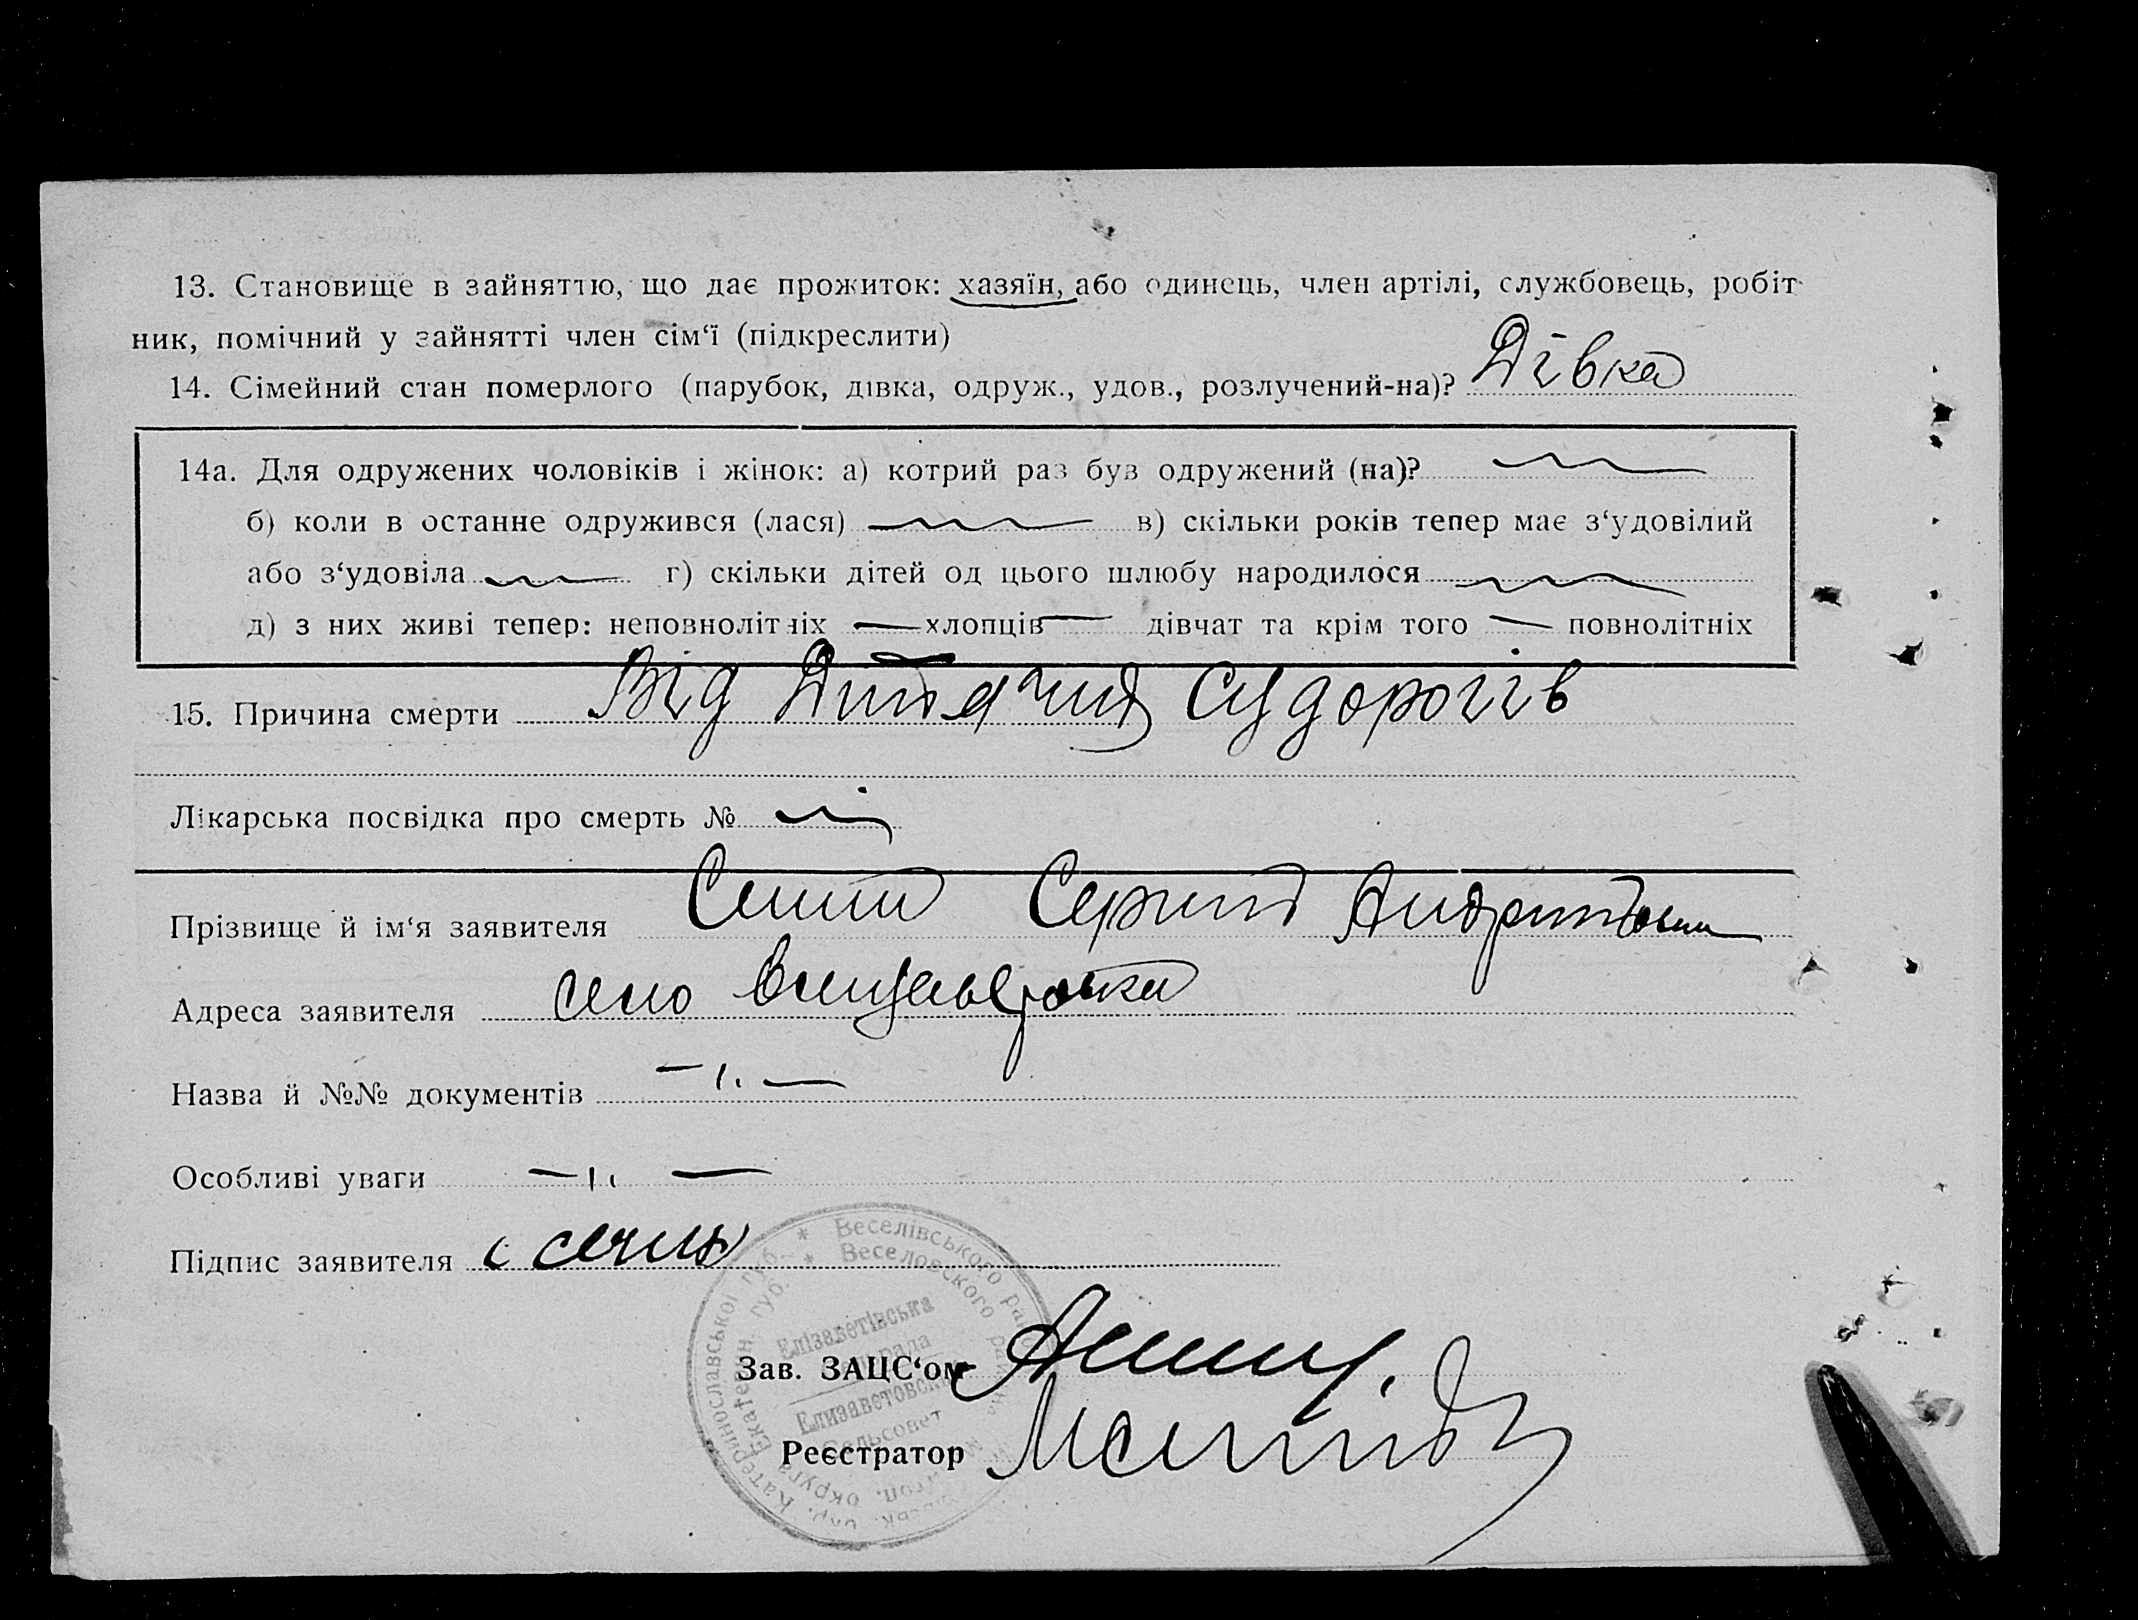 13. Становище в зайняттю, що дає прожиток: хазяїн, або одинець, член артілі, службовець, робіт-
ник, помічний у зайнятті член сім‘ї (підкреслити)
14. Сімейний стан померлого (парубок, дівка, одруж., удов., розлучений-на)? Дівка
14а. Для одружених чоловіків і жінок: а) котрий раз був одружений (на)?
б) коли в останне одружився (лася) в) скільки років тепер має з‘удовілий
або з‘удовіла г) скільки дітей од цього шлюбу народилося
д) з них живі тепер: неповнолітніх — хлопців — дівчат та крім того — повнолітніх
15. Причина смерти Від Дитячих Судорогів
Лікарська посвідка про смерть №
Прізвище й ім‘я заявителя Сергий
Адреса заявителя село
Назва й №№ документів — „ —
Особливі уваги — „ —
Підпис заявителя
* Веселівського
* Веселовского
Катеринославської губ.
Екатерин. губ.
Елізаветівська
сельрада
Елизаветовский
Сельсовет
Зав. ЗАЦС‘ом
Реєстратор